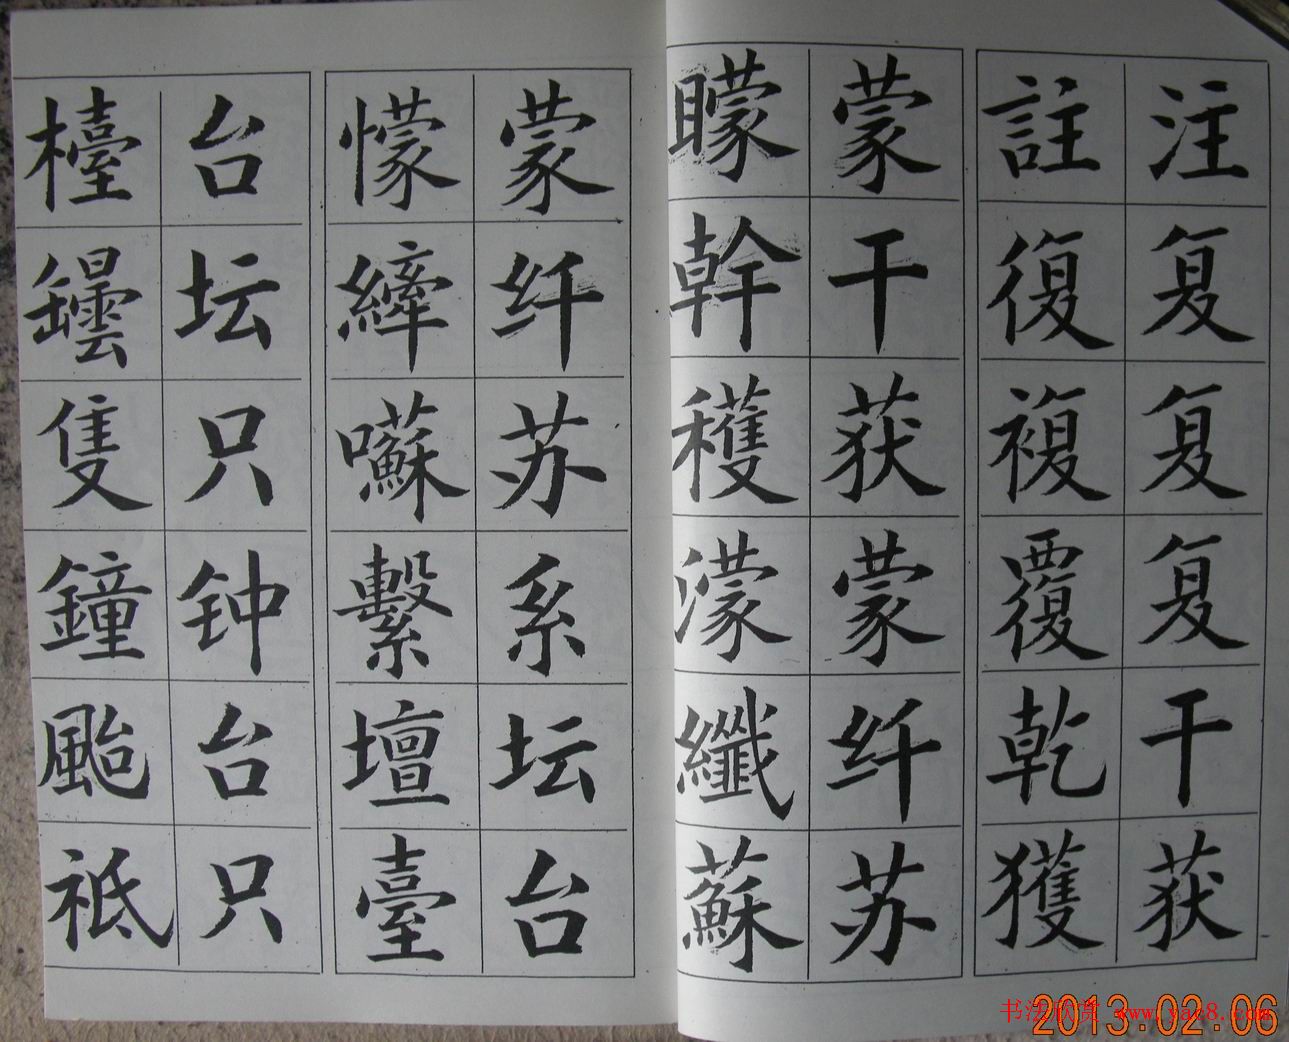 注註
复復
复複
复覆
干乾
获獲
蒙矇
干幹
获穫
蒙濛
纤纖
苏蘇
蒙懞
纤縴
苏囌
系繫
坛壇
台臺
台檯
坛罎
只隻
钟鐘
台颱
只祗
书法欣赏 www.yac8.com
2013.02.06